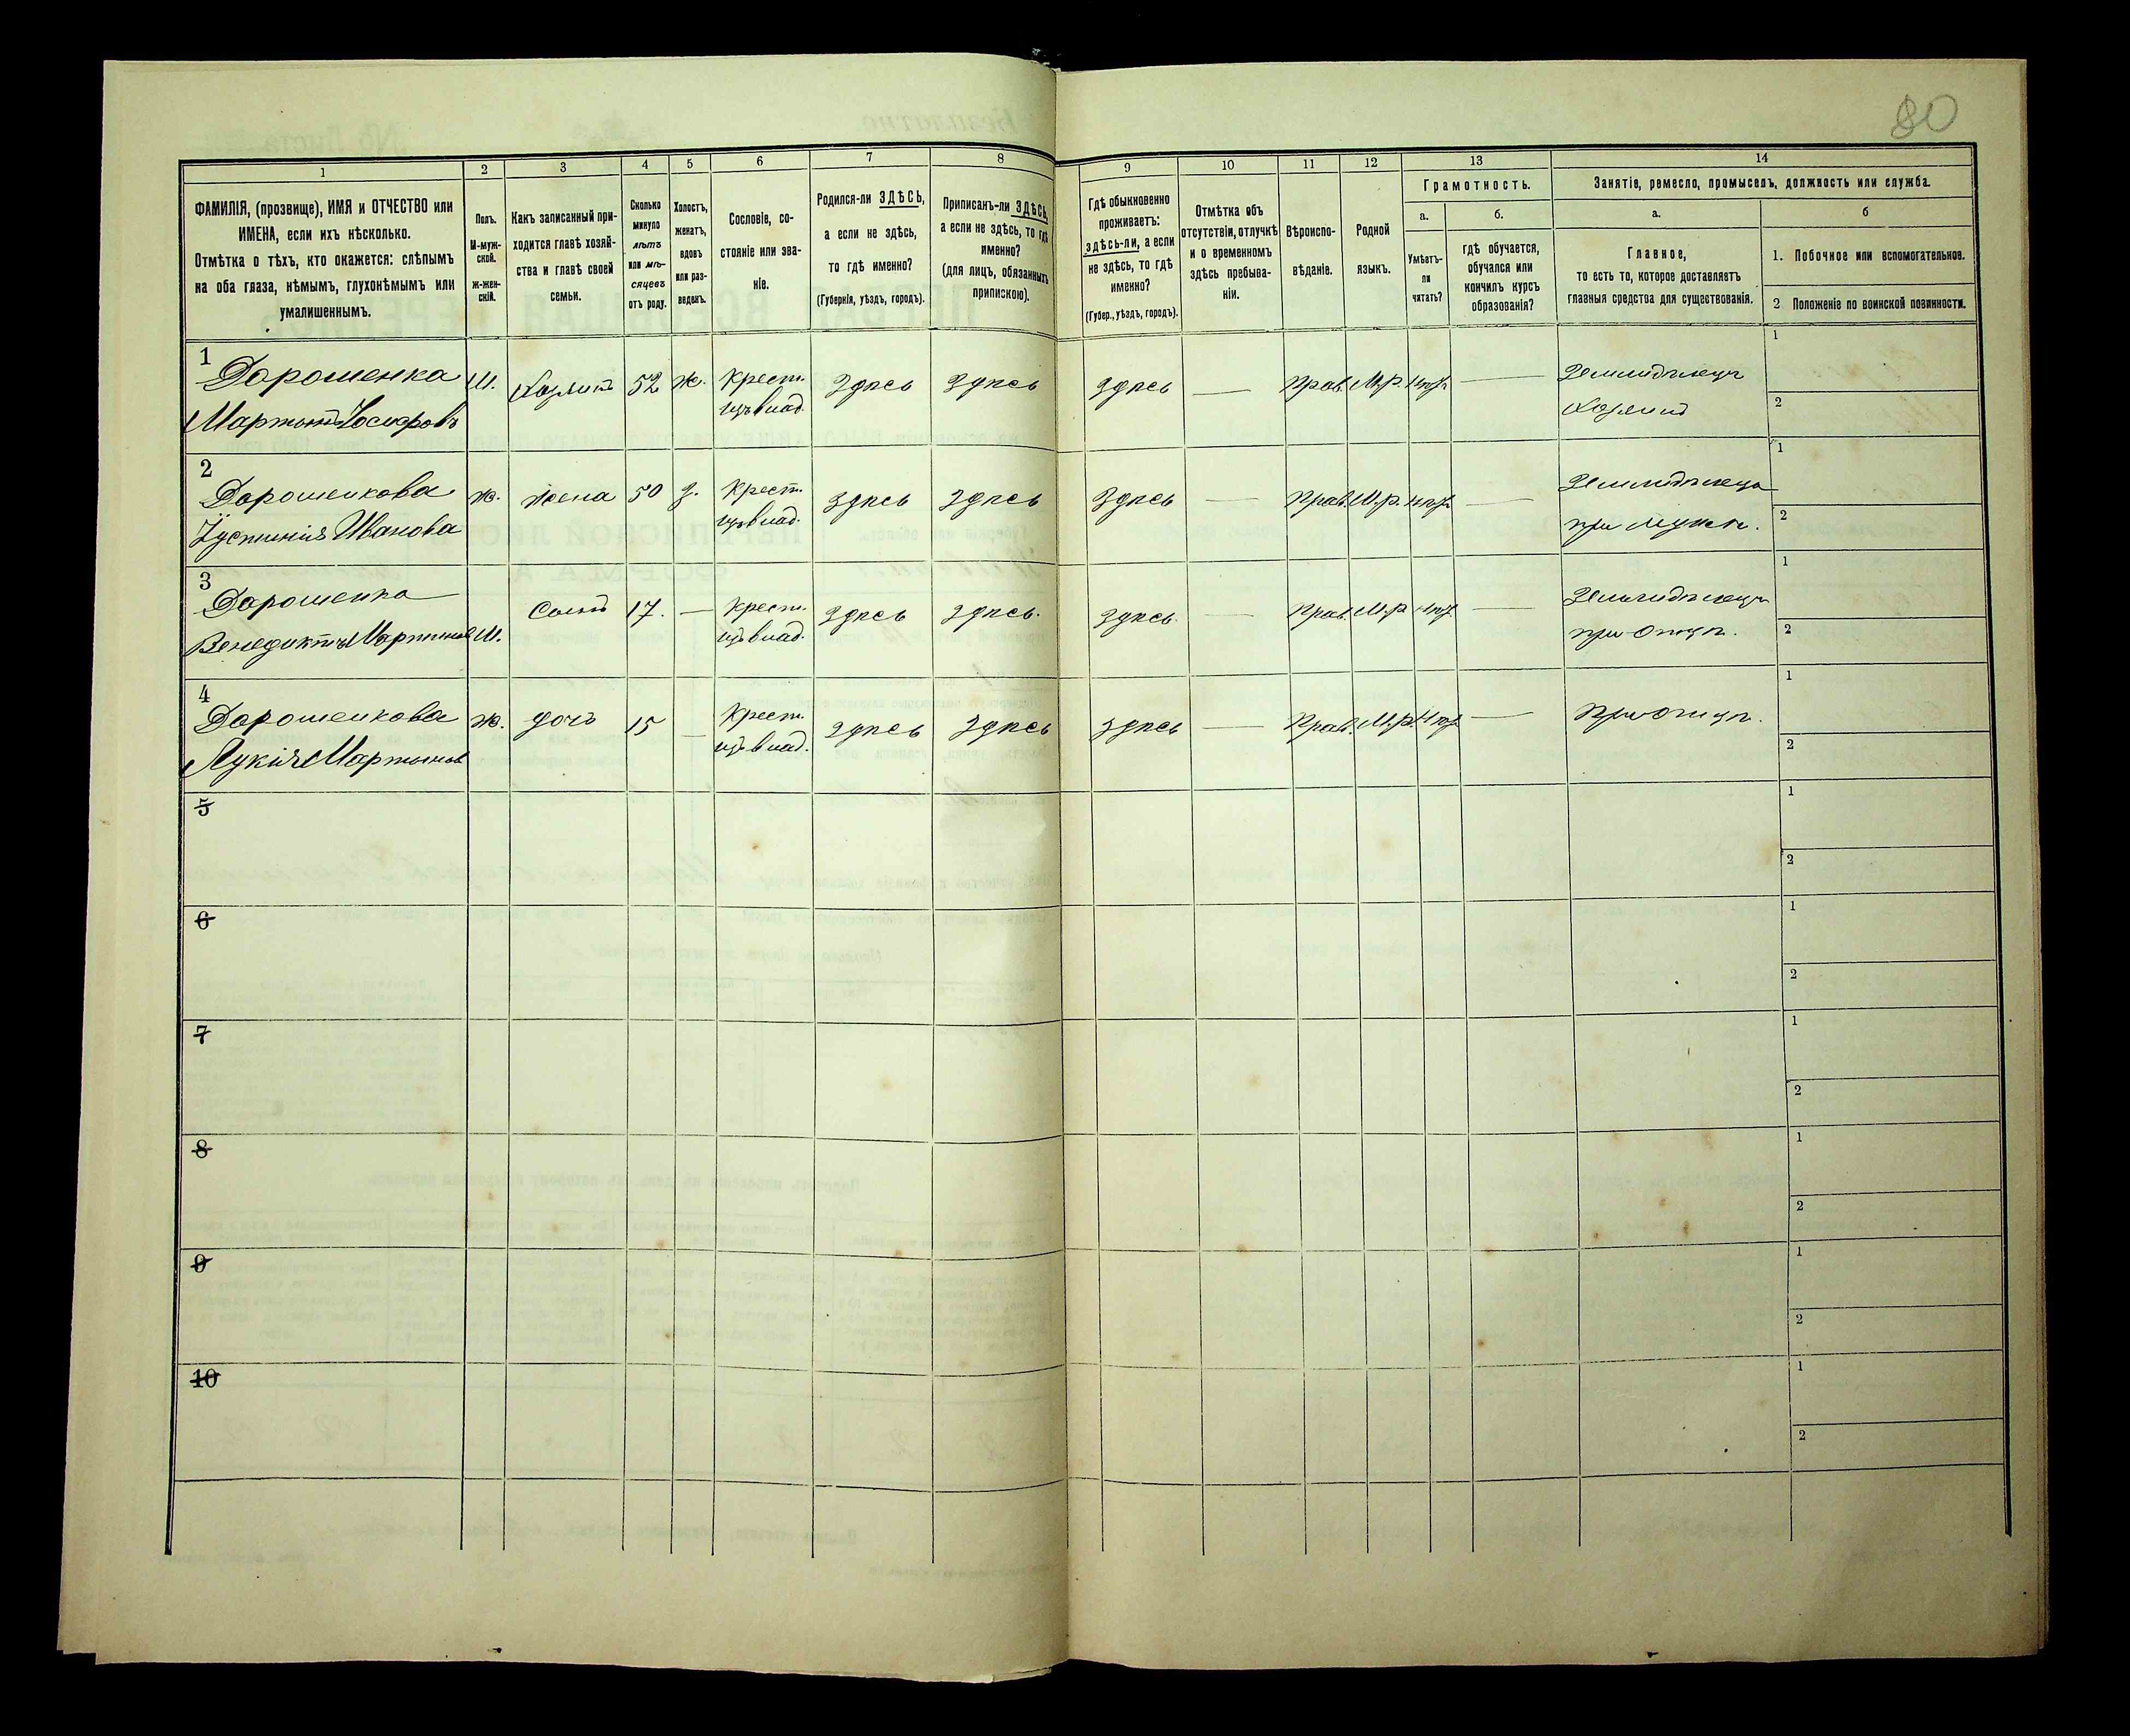 80
1
2
3
4
5
6
7
8
9
10
11
12
13
14
ФАМИЛІЯ, (прозвище), ИМЯ и ОТЧЕСТВО или
ИМЕНА, если ихъ нѣсколько.
Отмѣтка о тѣхъ, кто окажется: слѣпымъ
на оба глаза, нѣмымъ, глухонѣмымъ или
умалишеннымъ.
Полъ.
М-муж-
ской.
Ж-жен-
скій.
Какъ записанный при-
ходится главѣ хозяй-
ства и главѣ своей
семьи.
Сколько
минуло
лѣтъ
или мѣ-
сяцевъ
отъ роду.
Холостъ,
женатъ,
вдовъ
или раз-
веденъ.
Сословіе, со-
стояніе или зва-
ніе.
Родился-ли ЗДѢСЬ,
а если не здѣсь,
то гдѣ именно?
(Губернія, уѣздъ, городъ).
Приписанъ-ли ЗДѢСЬ,
а если не здѣсь, то гдѣ
именно?
(для лицъ, обязанныхъ
припискою).
Гдѣ обыкновенно
проживаетъ:
здѣсь-ли, а если
не здѣсь, то гдѣ
именно?
(Губер., уѣздъ, городъ).
Отмѣтка объ
отсутствіи, отлучкѣ
и о временномъ
здѣсь пребыва-
ніи.
Вѣроиспо-
вѣданіе.
Родной
языкъ.
Грамотность.
а.
Умѣетъ-
ли
читать?
б.
гдѣ обучается,
обучался или
кончилъ курсъ
образованія?
Занятіе, ремесло, промыселъ, должность или служба.
а.
Главное,
то есть то, которое доставляетъ
главныя средства для существованія.
б
1. Побочное или вспомогательное.
2 Положеніе по воинской повинности.
1 Дорошенко М. Хозяинъ 52 ж. Крест. Здѣсь Здѣсь Здѣсь — Прав. М.р. — Земледѣлецъ 1
Мартынъ владѣ. Хозяинъ 2
2 Дорошенкова ж. жена 50 з. Крест. Здѣсь Здѣсь Здѣсь — Прав. М.р. — 1
Іустинія Иванова при мужѣ. 2
3 Дорошенко Сынъ 17. — Крест. Здѣсь Здѣсь. Здѣсь. — Прав. М.р. — 1
Венедиктъ М. при отцѣ. 2
4 Дорошенкова ж. дочь 15 — Крест. Здѣсь Здѣсь Здѣсь — Прав. М.р. — При отцѣ. 1
Лукія 2
5 1
2
6 1
2
7 1
2
8 1
2
9 1
2
10 1
2